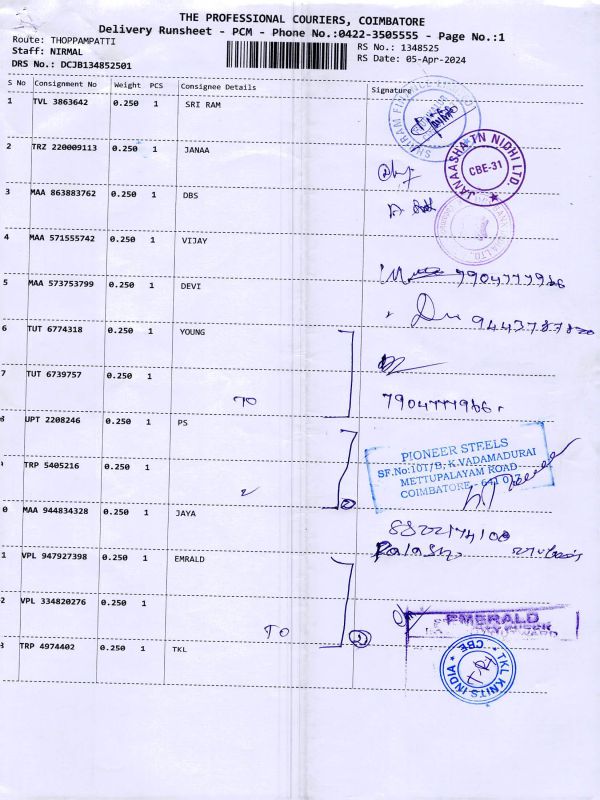 THE PROFESSIONAL COURIERS, COIMBATORE
Delivery Runsheet - PCM - Phone No.:0422-3505555 - Page No.:1
Route: THOPPAMPATTI
Staff: NIRMAL
DRS No.: DCJB134852501
RS No.: 1348525
RS Date: 05-Apr-2024
S No Consignment No Weight PCS Consignee Details Signature
1 TVL 3863642 0.250 1 SRI RAM
2 TRZ 220009113 0.250 1 JANAA
JANAASHA TN NIDHI LTD.
CBE-31
3 MAA 863883762 0.250 1 DBS
4 MAA 571555742 0.250 1 VIJAY
7904777966
5 MAA 573753799 0.250 1 DEVI
6 TUT 6774318 0.250 1 YOUNG
7 TUT 6739757 0.250 1
TO
7904777966
8 UPT 2208246 0.250 1 PS
TRP 5405216 0.250 1
2
PIONEER STEELS
SF.No:101/B, K.VADAMADURAI
METTUPALAYAM ROAD
COIMBATORE -
0 MAA 944834328 0.250 1 JAYA
1 VPL 947927398 0.250 1 EMRALD
2 VPL 334820276 0.250 1
TO
2
EMERALD
3 TRP 4974402 0.250 1 TKL
TKL KNITS INDIA
CBE